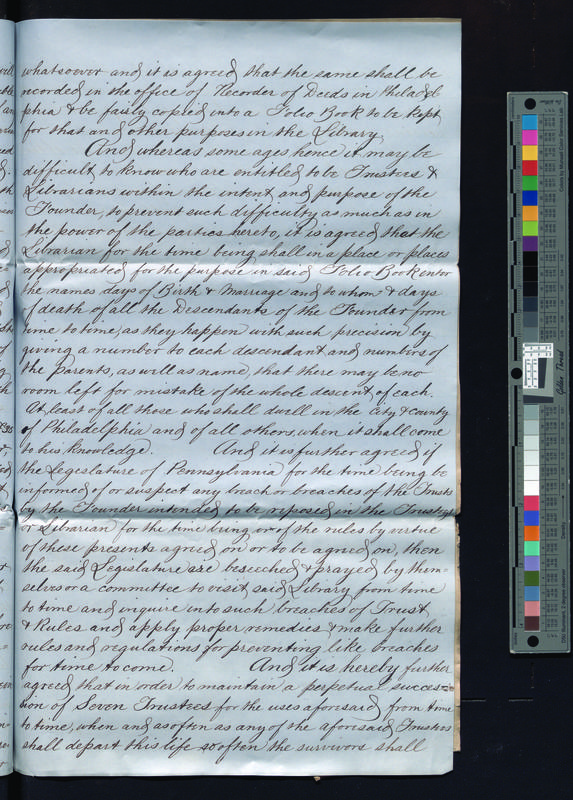 whatsoever and it is agreed that the same shall be
recorded in the office of Recorder of Deeds in Philadel
phia & be fairly copied into a Folio Book to be kept
for that and other purposes in the Library.
And whereas some ages hence it may be
difficult to know who are entitled to be Trustees &
Librarians within the intent and purpose of the
Founder, to prevent such difficulty as much as in
the power of the parties hereto, it is agreed that the
Librarian for the time being shall in a place or places
appropriated for the purpose in said Folio Book enter
the names days of Birth & Marriage and to whom & days
of death of all the Descendants of the Founder from
time to time, as they happen with such precision by
giving a number to each descendant and numbers of
the parents, as well as name, that there may be no
room left for mistake of the whole descent of each.
At least of all those who shall dwell in the City & County
of Philadelphia and of all others, when it shall come
to his knowledge. And it is further agreed if
the Legislature of Pennsylvania for the time being be
informed of or suspect any breach or breaches of the Trusts
by the Founder intended to be reposed in the Trustees
or Librarian for the time being or of the rules by virtue
of these presents agreed on or to be agreed on, then
the said Legislature are beseeched & prayed by them-
selves or a committee to visit said Library from time
to time and inquire into such breaches of Trust
& Rules and apply proper remedies & make further
rules and regulations for preventing like breaches
for time to come. And it is hereby further
agreed that in order to maintain a perpetual success-
ion of Seven Trustees for the uses aforesaid from time
to time, when and as often as any of the aforesaid Trustees
shall depart this life so often the survivors shall